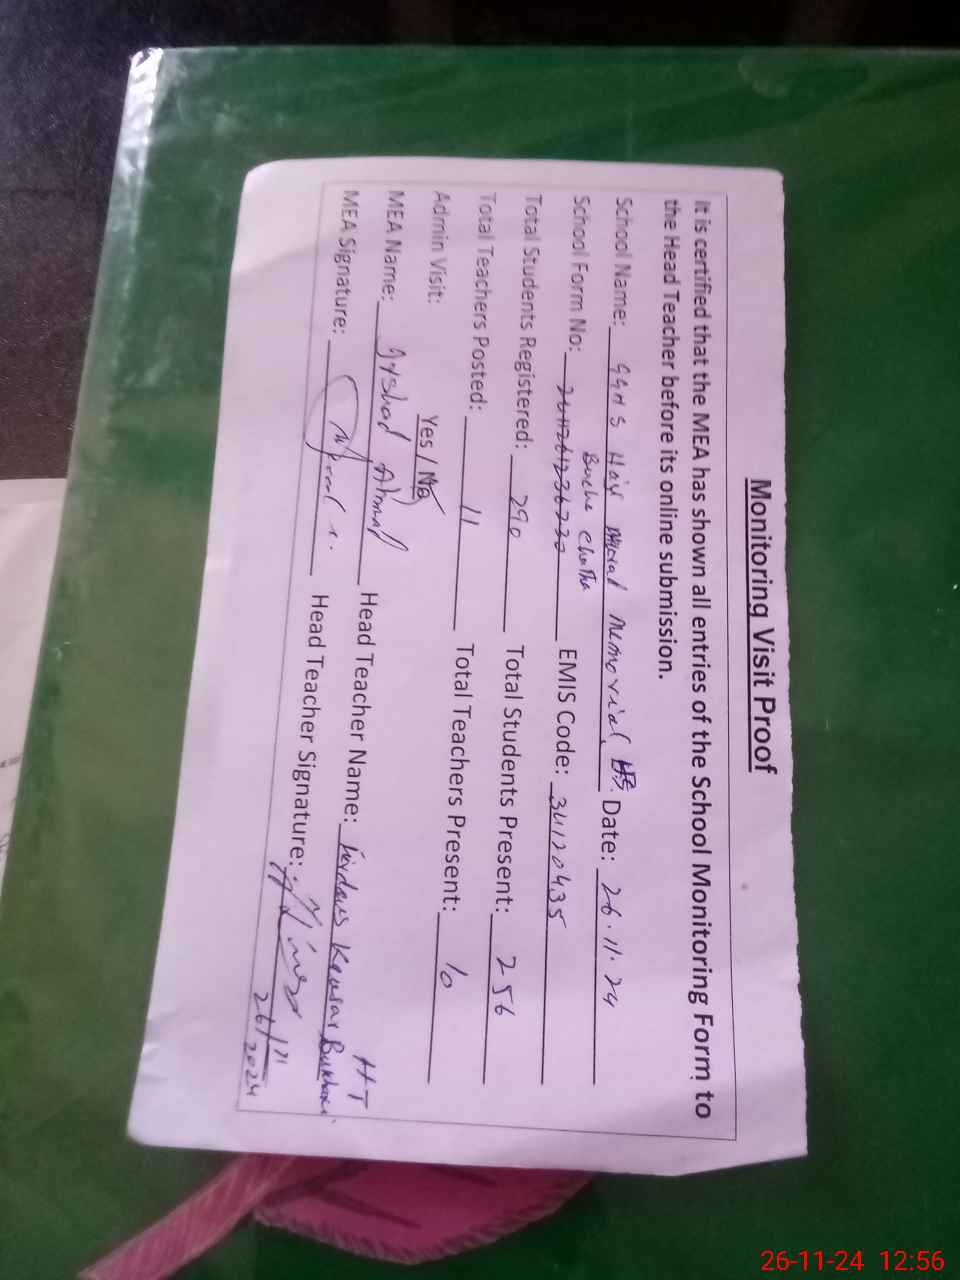 Monitoring Visit Proof
It is certified that the MEA has shown all entries of the School Monitoring Form to
the Head Teacher before its online submission.
School Name: GGHS Memorial Date: 26.11.24
Chatha
School Form No: EMIS Code: 34120435
Total Students Registered: 290 Total Students Present: 256
Total Teachers Posted: 11 Total Teachers Present: 10
Admin Visit: Yes / No
HT
MEA Name: Ahmad Head Teacher Name: Kausar Bukhari
MEA Signature: Head Teacher Signature:
26/11/
2024
26-11-24 12:56